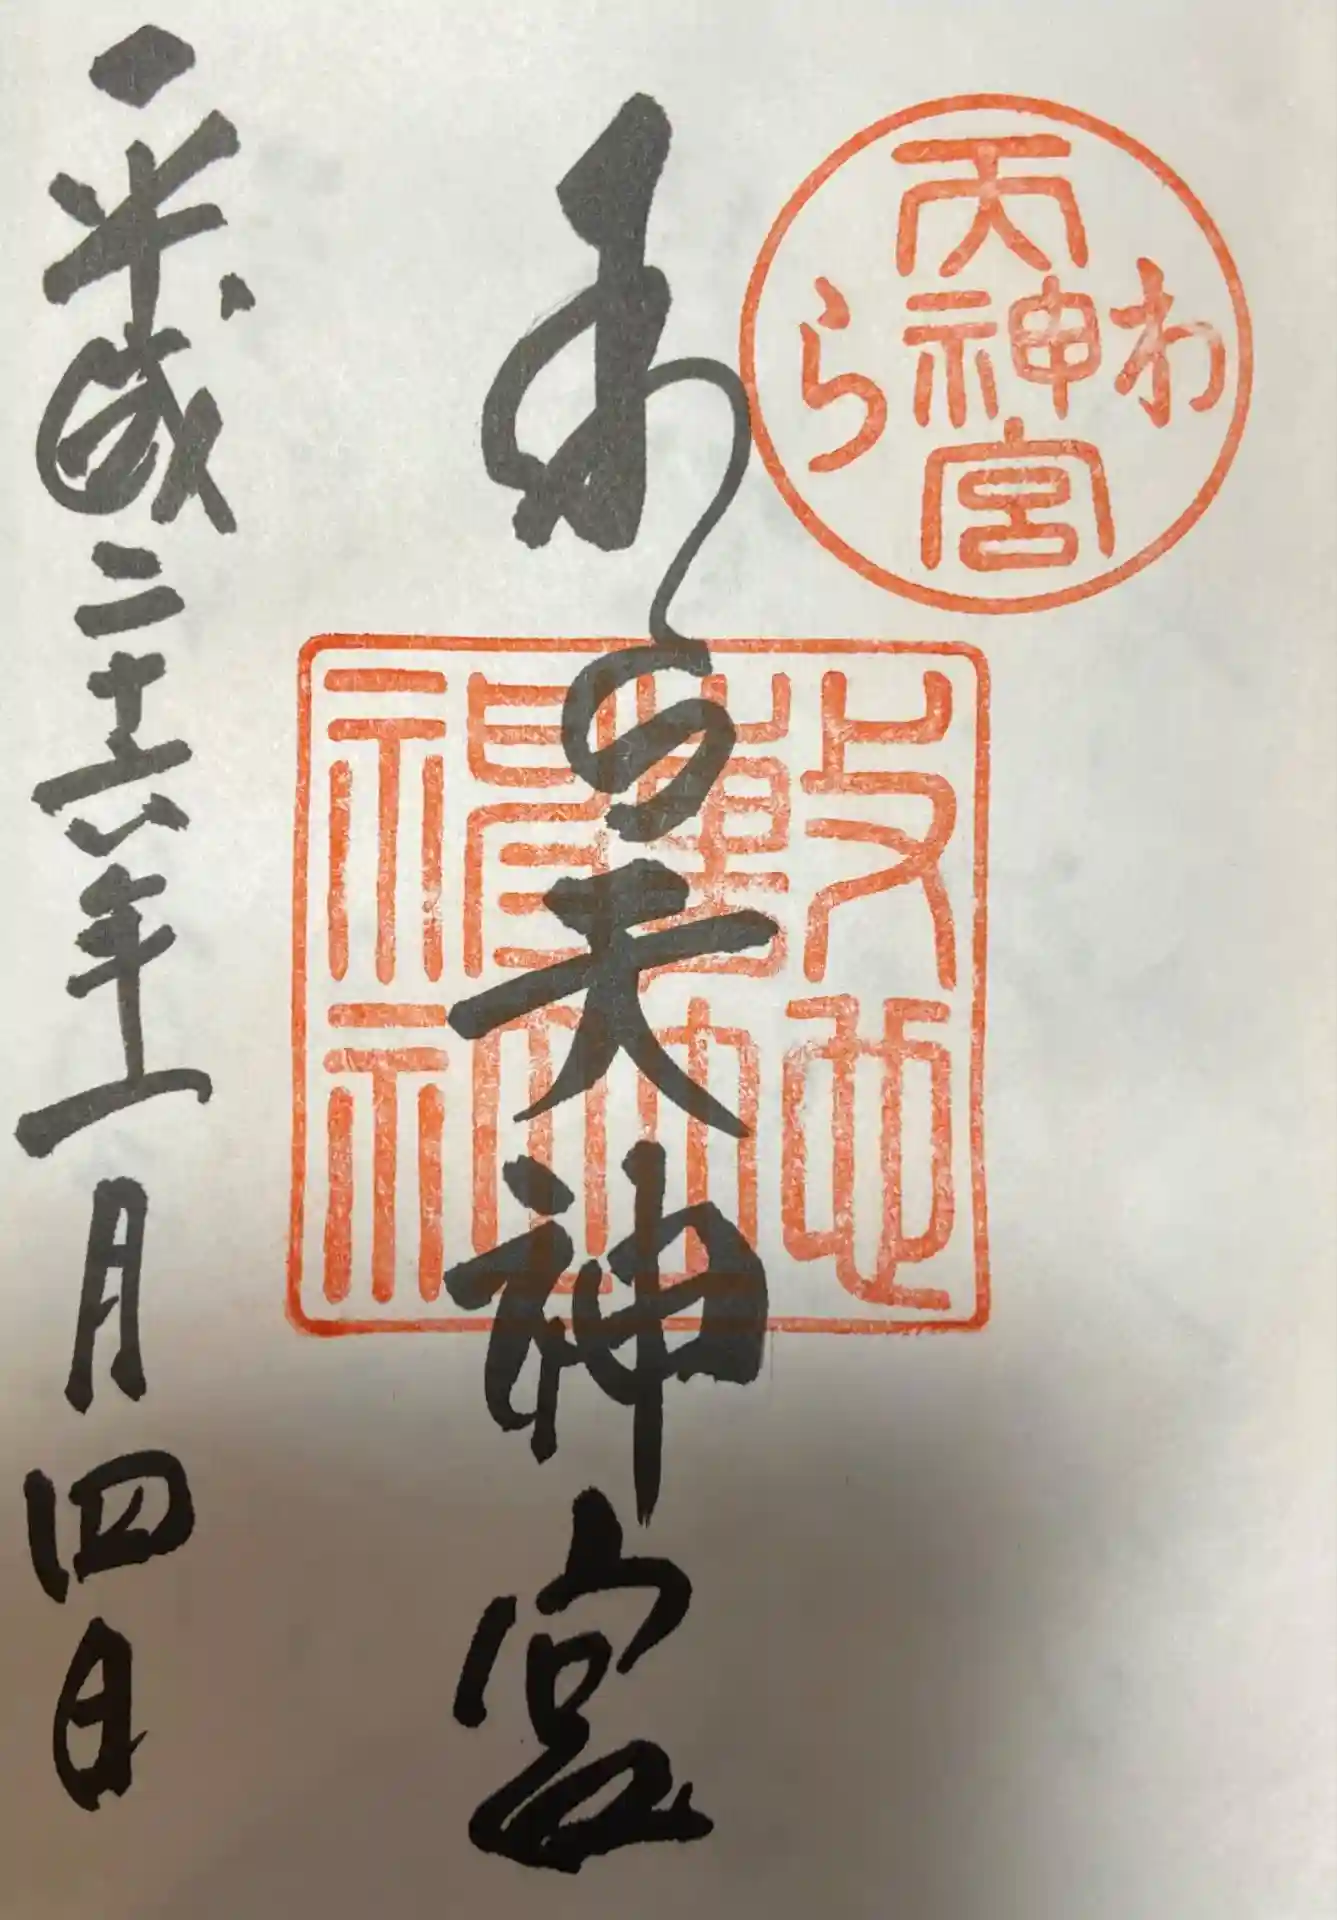 わら
天神宮
敷地
神社
わら天神宮
平成二十六年一月四日